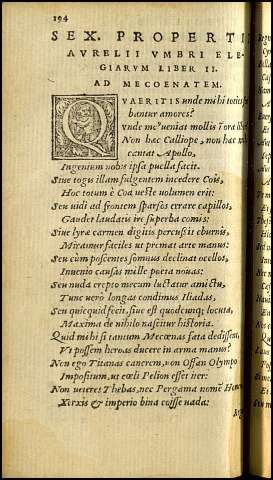 194
SEX. PROPERTI
AVRELII VMBRI ELE-
GIARVM LIBER II.
AD MECOENATEM.
QVAERITIS unde mihi toties
bantur amores?
Vnde me' ueniat mollis in ora
Non hæc Calliope, non hæc
cantat Apollo,
Ingenium nobis ipsa puella facit.
Siue togis illam fulgentem incedere Cois,
Hoc totum è Coa ueste uolumen erit:
Seu uidi ad frontem sparsos errare capillos,
Gaudet laudatis ire superba comis:
Siue lyræ carmen digitis percussit eburnis,
Miramur faciles ut premat arte manus:
Seu cùm poscentes somnus declinat ocellos,
Inuenio causas mille poeta nouas:
Seu nuda erepto mecum luctatur amictu,
Tunc uerò longas condimus Iliadas,
Seu quicquid fecit, siue est quodcunq; locuta,
Maxima de nihilo nascitur historia.
Quid mihi si tantum Mecœnas fata dedissent,
Vt possem heroas ducere in arma manus?
Non ego Titanas canerem, non Ossan Olympo
Impositum, ut cœli Pelion esset iter:
Non ueteres Thebas, nec Pergama nomē
Xerxis & imperio bina coisse uada: